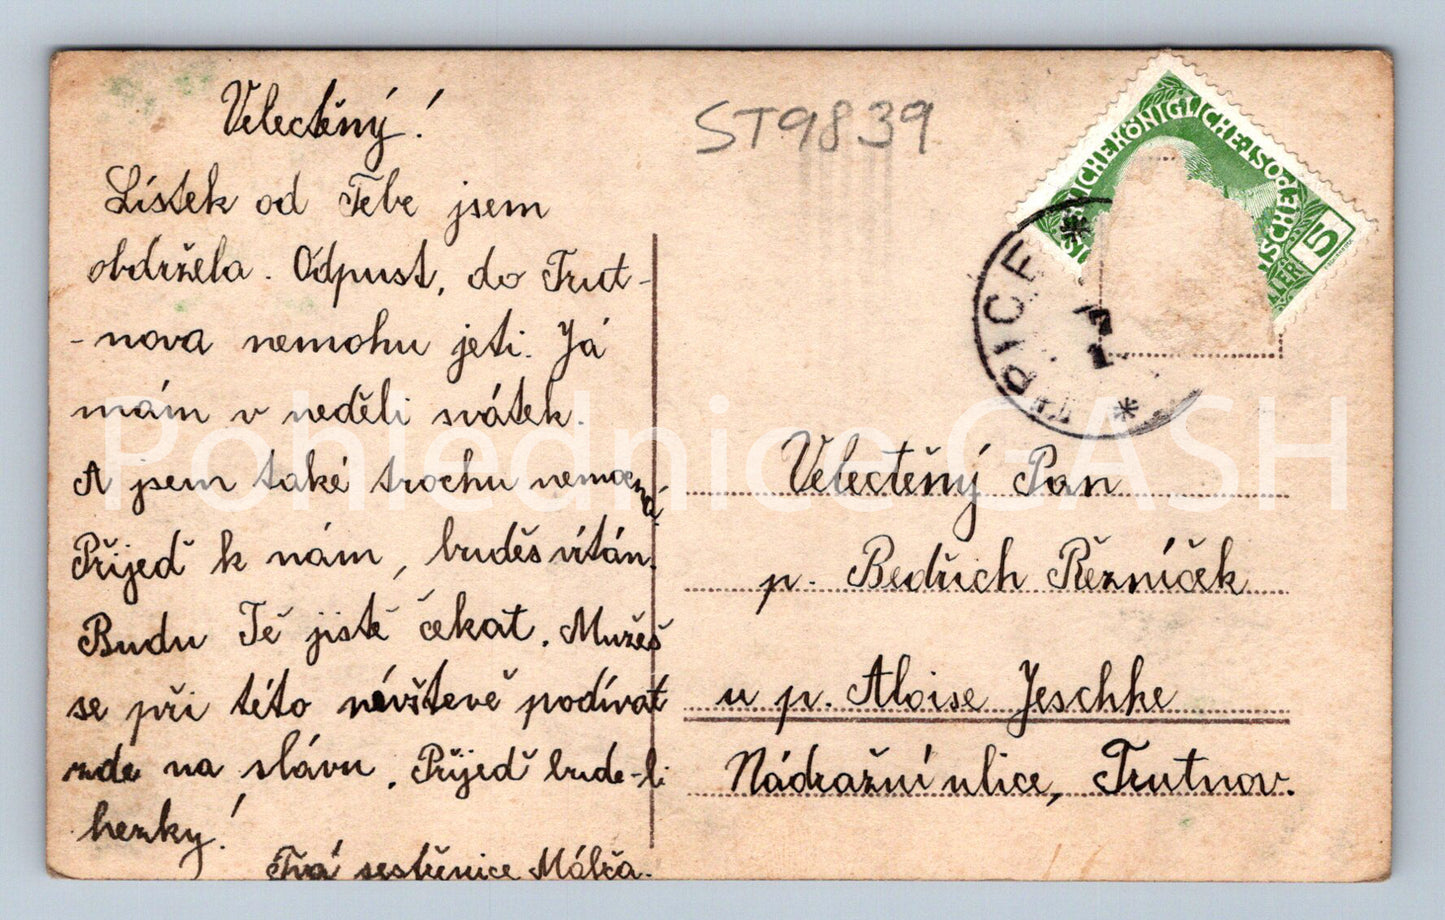 Velectěný!
Lístek od Tebe jsem
obdržela. Odpust, do Trut-
-nova nemohu jeti. Já
mám v neděli svátek.
A jsem také trochu nemocná.
Přijeď k nám, budeš vítán.
Budu Tě jistě čekat. Mužeš
se při této návštevě podívat
zde na slávu. Přijeď bude-li
hezky!
Tvá sestřenice Málča.
ST9839
KÖNIGLICHE POST
5
EPICE
Velectěný Pan
p. Bedřich Řezníček
u p. Aloise Jeschke
Nádražní ulice, Trutnov.
Pohlednice GASH